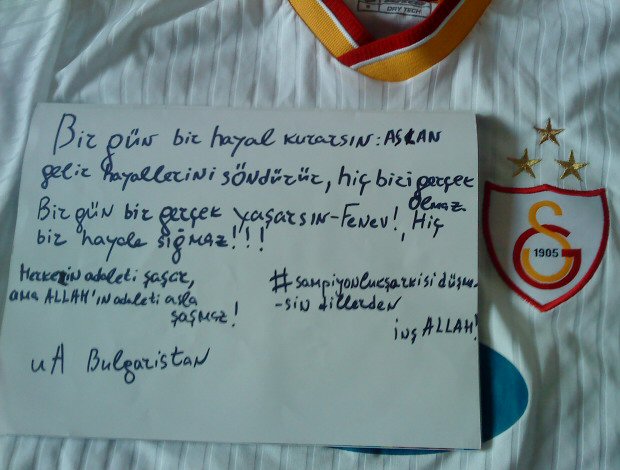 DRY TECH
Bir gün bir hayal kurarsın: ASLAN
gelir hayallerini söndürür, hiç biri gerçek
olmaz.
Bir gün bir gerçek yaşarsın-Fenev!, Hiç
bir hayale sığmaz!!!
Herkezin adaleti şaşar,
ama ALLAH'ın adaleti asla
şaşmaz!
#şampiyonlukşarkısı düşme-
-sin dillerden
inş ALLAH!
uA Bulgaristan
GS
1905